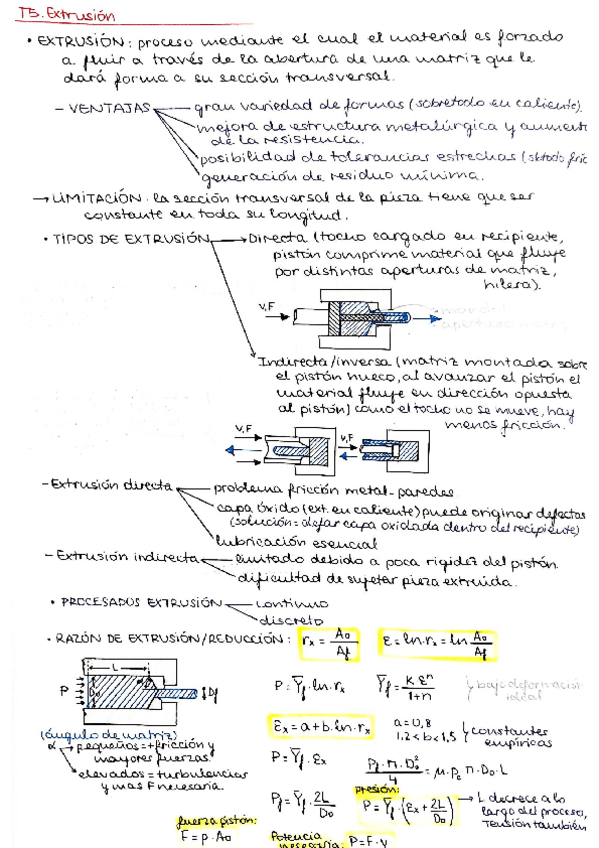 T5. Extrusión
• EXTRUSIÓN: proceso mediante el cual el material es forzado
a fluir a través de la abertura de una matriz que le
dará forma a su sección transversal.
- VENTAJAS
gran variedad de formas (sobretodo en caliente).
mejora de estructura metalúrgica y aument
de la resistencia.
posibilidad de tolerancias estrechas (sbtodo fríc
generación de residuo mínima.
→ LIMITACIÓN: la sección transversal de la pieza tiene que ser
constante en toda su longitud.
• TIPOS DE EXTRUSIÓN → Directa (tocho cargado en recipiente,
pistón comprime material que fluye
por distintas aperturas de matriz,
hilera).
V,F
Indirecta/inversa (matriz montada sobre
el pistón hueco, al avanzar el pistón el
material fluye en dirección opuesta
al pistón) como el tocho no se mueve, hay
menos fricción.
V,F
V,F
- Extrusión directa
problema fricción metal-paredes
capa óxido (ext. en caliente) puede originar defectos
(solución = dejar capa oxidada dentro del recipiente)
lubricación esencial
- Extrusión indirecta
limitado debido a poca rigidez del pistón.
dificultad de sujetar pieza extruida.
• PROCESADOS EXTRUSIÓN
continuo
discreto
• RAZÓN DE EXTRUSIÓN/REDUCCIÓN: rx = Ao/Af ε = ln·rx = ln Ao/Af
L
α
P
Do
Df
P = Ȳf · ln·rx Ȳf = K·εⁿ/1+n bajo deformación
ideal
(ángulo de matriz)
α → pequeños = + fricción y
mayores fuerzas.
elevados = turbulencias
y mas F necesaria.
εx = a + b·ln·rx a = 0,8
1,2 < b < 1,5 constantes
empíricas
P = Ȳf · εx Pf·π·Do²/4 = μ·pc·π·Do·L
Pf = Ȳf · 2L/Do
presión:
P = Ȳf · (εx + 2L/Do) → L decrece a lo
largo del proceso,
tensión también
fuerza pistón:
F = p·Ao
Potencia
necesaria: P = F·v